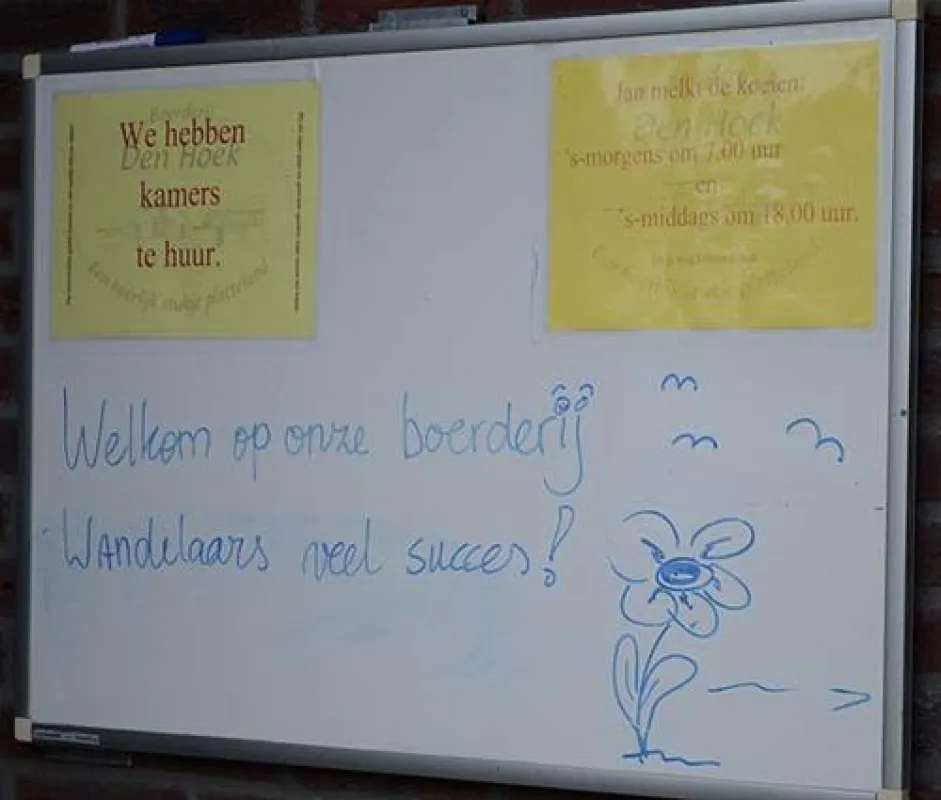 Boerderij
We hebben
Den Hoek
kamers
te huur.
Een heerlijk stukje platteland
Jan melkt de koeien:
Den Hoek
's-morgens om 7.00 uur
en
's-middags om 18,00 uur.
Een heerlijk stukje platteland
Welkom op onze boerderij
Wandelaars veel succes!